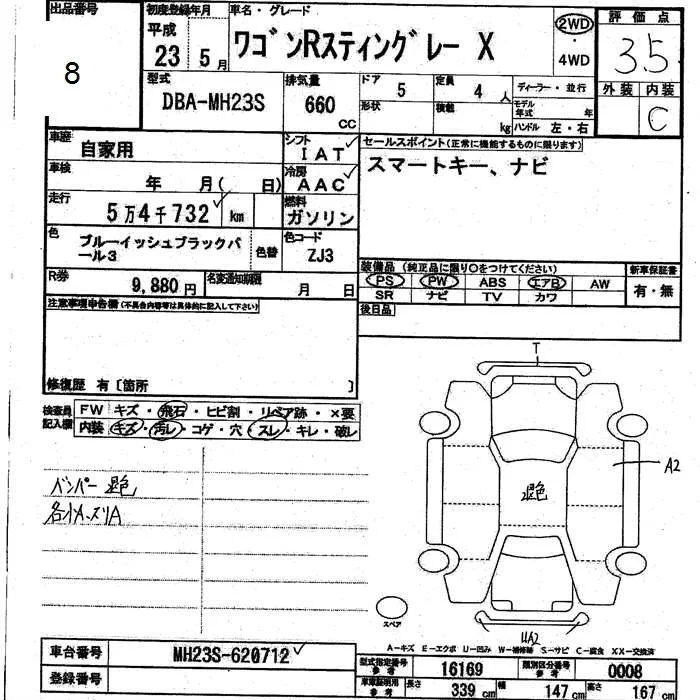 出品番号
8
初度登録年月
平成
23 5月
車名・グレード
ワゴンRスティングレー X
2WD
・
4WD
評価点
3.5
外装 内装
C
型式
DBA-MH23S
排気量
660
CC
ドア
5
定員
4 人
形状
積載
kg
ディーラー・並行
モデル年式 年
ハンドル 左・右
車歴
自家用
シフト
IAT
車検
年 月( 日)
冷房
AAC
走行
5万4千732 km
燃料
ガソリン
色
ブルーイッシュブラックパール3
色替
色コード
ZJ3
R券
9,880円
名変通知期限
月 日
セールスポイント(正常に機能するものに限ります)
スマートキー、ナビ
装備品 (純正品に限り○をつけてください)
PS PW ABS エアB AW
SR ナビ TV カワ
新車保証書
有・無
後日品
注意事項申告欄(不具合内容等は具体的に記入して下さい)
修復歴 有〔箇所 〕
検査員記入欄
FW キズ・飛石・ヒビ割・リペア跡・×要
内装 キズ・汚レ・コゲ・穴・スレ・キレ・破レ
バンパー退色
各小A、スリA
T
A2
退色
UA2
スペア
A-キズ E-エクボ U-凹み W-補修跡 S-サビ C-腐食 XX-交換済
車台番号
MH23S-620712
登録番号
型式指定番号 参考
16169
類別区分番号 参考
0008
車庫証明用 参考
長さ 339 cm 幅 147 cm 高さ 167 cm